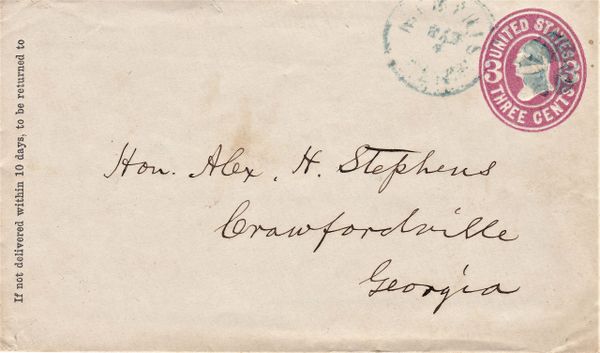 UNITED STATES
3 3
THREE CENTS
Hon. Alex. H. Stephens
Crawfordville
Georgia
If not delivered within 10 days, to be returned to